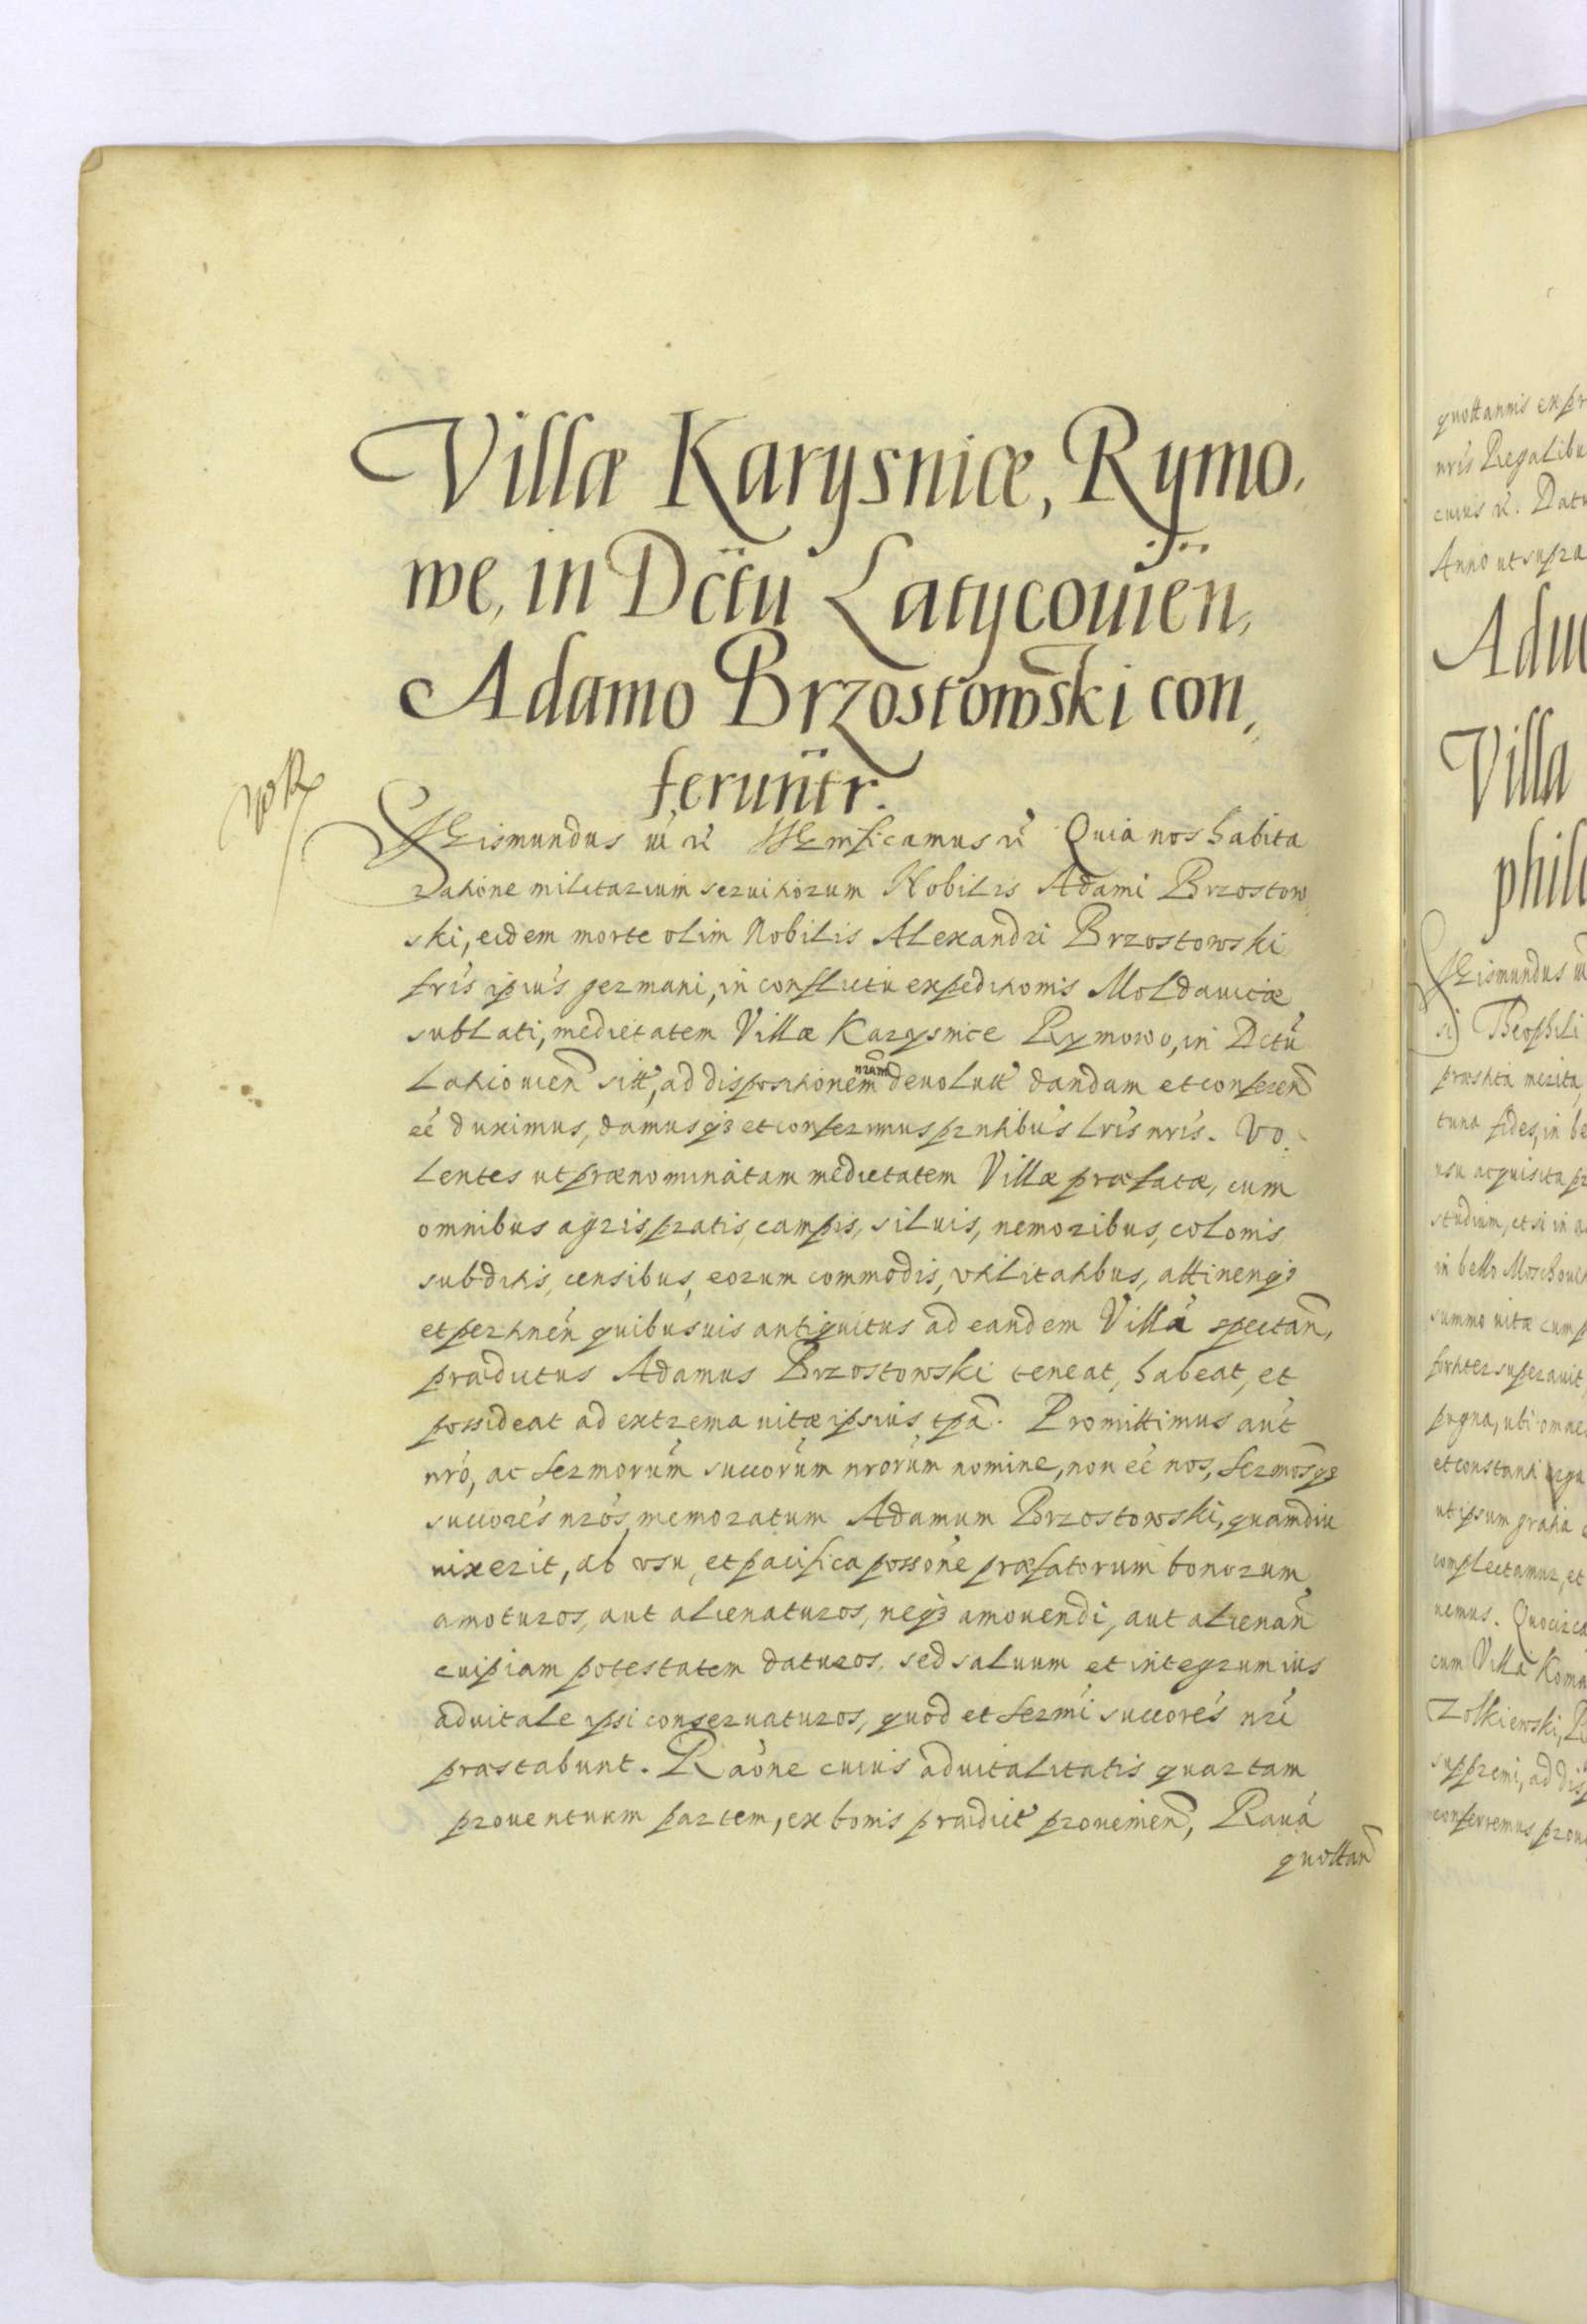 Villæ Karysnice, Rymo,
we, in Dctu Latycouien,
Adamo Brzostowski con,,
feruntr.
Sigismundus III etc. Significamus etc. Quia nos habita
ratione militarium seruitiorum Nobilis Adami Brzostow,
ski, eidem morte olim Nobilis Alexandri Brzostowski
fris ipius germani, in conflictu expeditionis Moldauicæ
sublati, medietatem Villæ Karysnice Rymowo, in Dctu
Laticouien sitt, ad dispositionem nram deuolutt dandam et conferen
eé duximus, damusq3 et conferimus prntibus lris nris. Vo,
lentes ut prænominatam medietatem Villæ præfatæ, cum
omnibus agris pratis, campis, siluis, nemoribus, colonis
subditis, censibus, eorum commodis, vtilitatibus, attinenq3
et pertinen quibusuis antiquitus ad eandem Villa spectan,
prædictus Adamus Brzostowski teneat, habeat, et
possideat ad extrema uitæ ipsius tpa. Promittimus aut
nro, ac sermorum succorum nrorum nomine, non eé nos, sermosq3
succores nros, memoratum Adamum Brzostowski, quamdiu
uixerit, ab vsu, et pacifica possone præfatorum bonorum
amoturos, aut alienaturos, neq3 amouendi, aut alienan
cuipiam potestatem daturos, sed saluum et integrum ius
aduitale ipsi conseruaturos, quod et sermi succores nri
præstabunt. Raone cuius aduitalitatis quartam
prouentuum partem, ex bonis prædict prouenien, Raua
quottan
quottannis ex pr
nris Regalibu
cuius r. Datu
Anno ut supra
Adu
Villa
phil
Sigismundus
Theophili
præstita merita
tuna fides, in be
usu acquisita pr
studium, et si in a
in bello Moschoui
summo uitæ cum p
fortiter superauit
pugna, ubi omne
et constanti
ut ipsum gratia
complectamur, et
nemus. Quocirca
cum Villa Koma
Zolkiewski,
suppremi, ad dis
conferremus prou